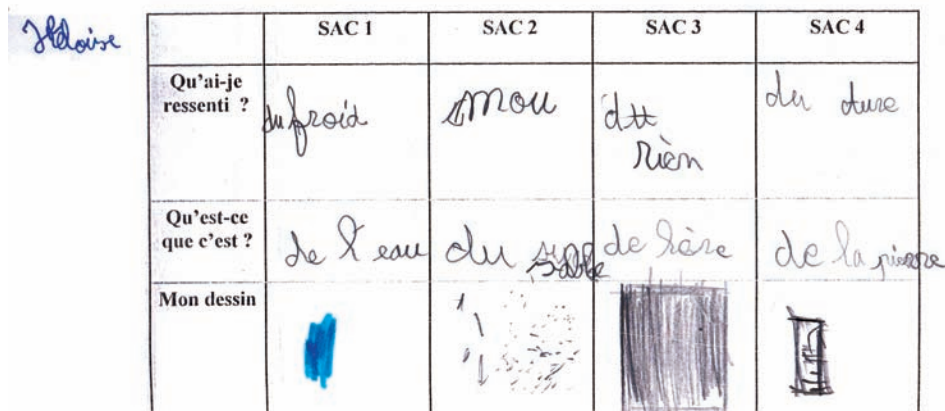 Héloïse
SAC 1 SAC 2 SAC 3 SAC 4
Qu'ai-je
ressenti ?
du froid mou du dure
rien
Qu'est-ce
que c'est ?
de l'eau du sable de la pierre
Mon dessin